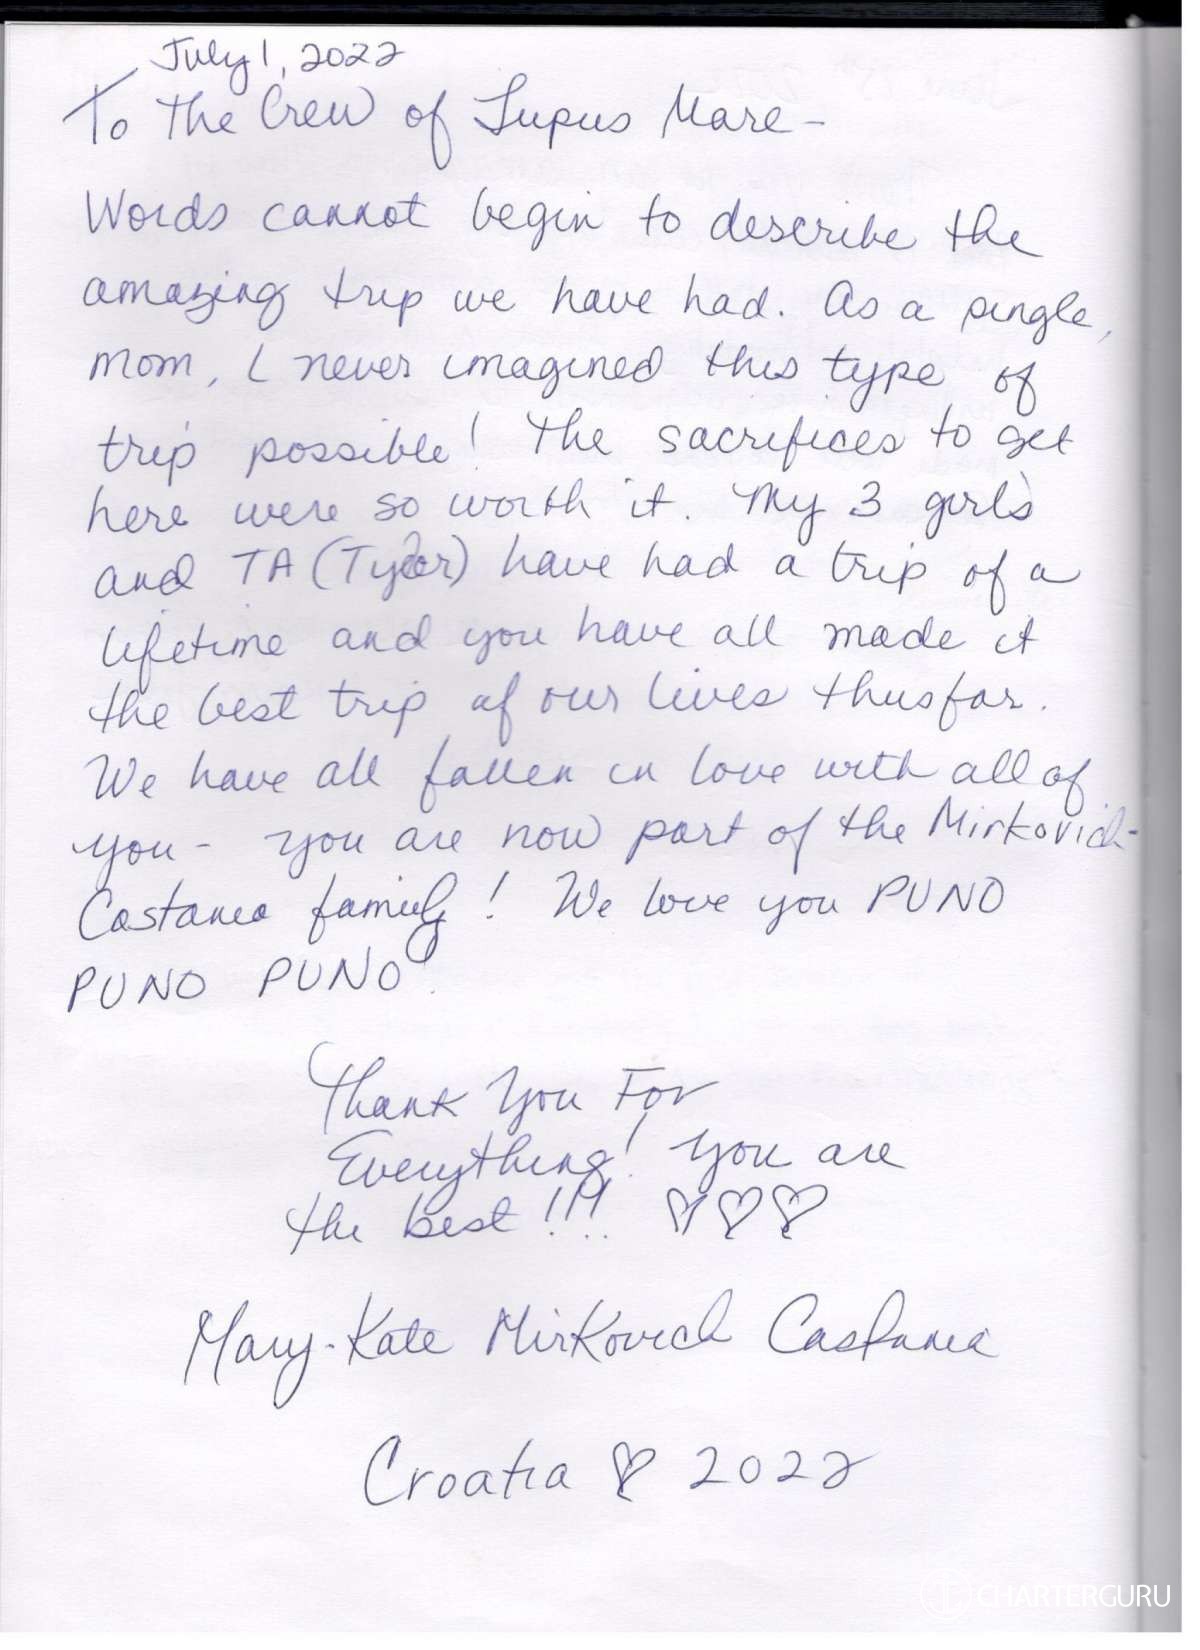 July 1, 2022
To the Crew of Lupus Mare -
Words cannot begin to describe the
amazing trip we have had. As a single,
mom, I never imagined this type of
trip possible! The sacrifices to get
here were so worth it. My 3 girls
and TA (Tyler) have had a trip of a
lifetime and you have all made it
the best trip of our lives thusfar.
We have all fallen in love with all of
you - you are now part of the Mirkovich-
Castanea family! We love you PUNO
PUNO PUNO!
Thank You For
Everything! You are
the best!!!!
Mary-Kate Mirkovich Castanea
Croatia 2022
CHARTERGURU